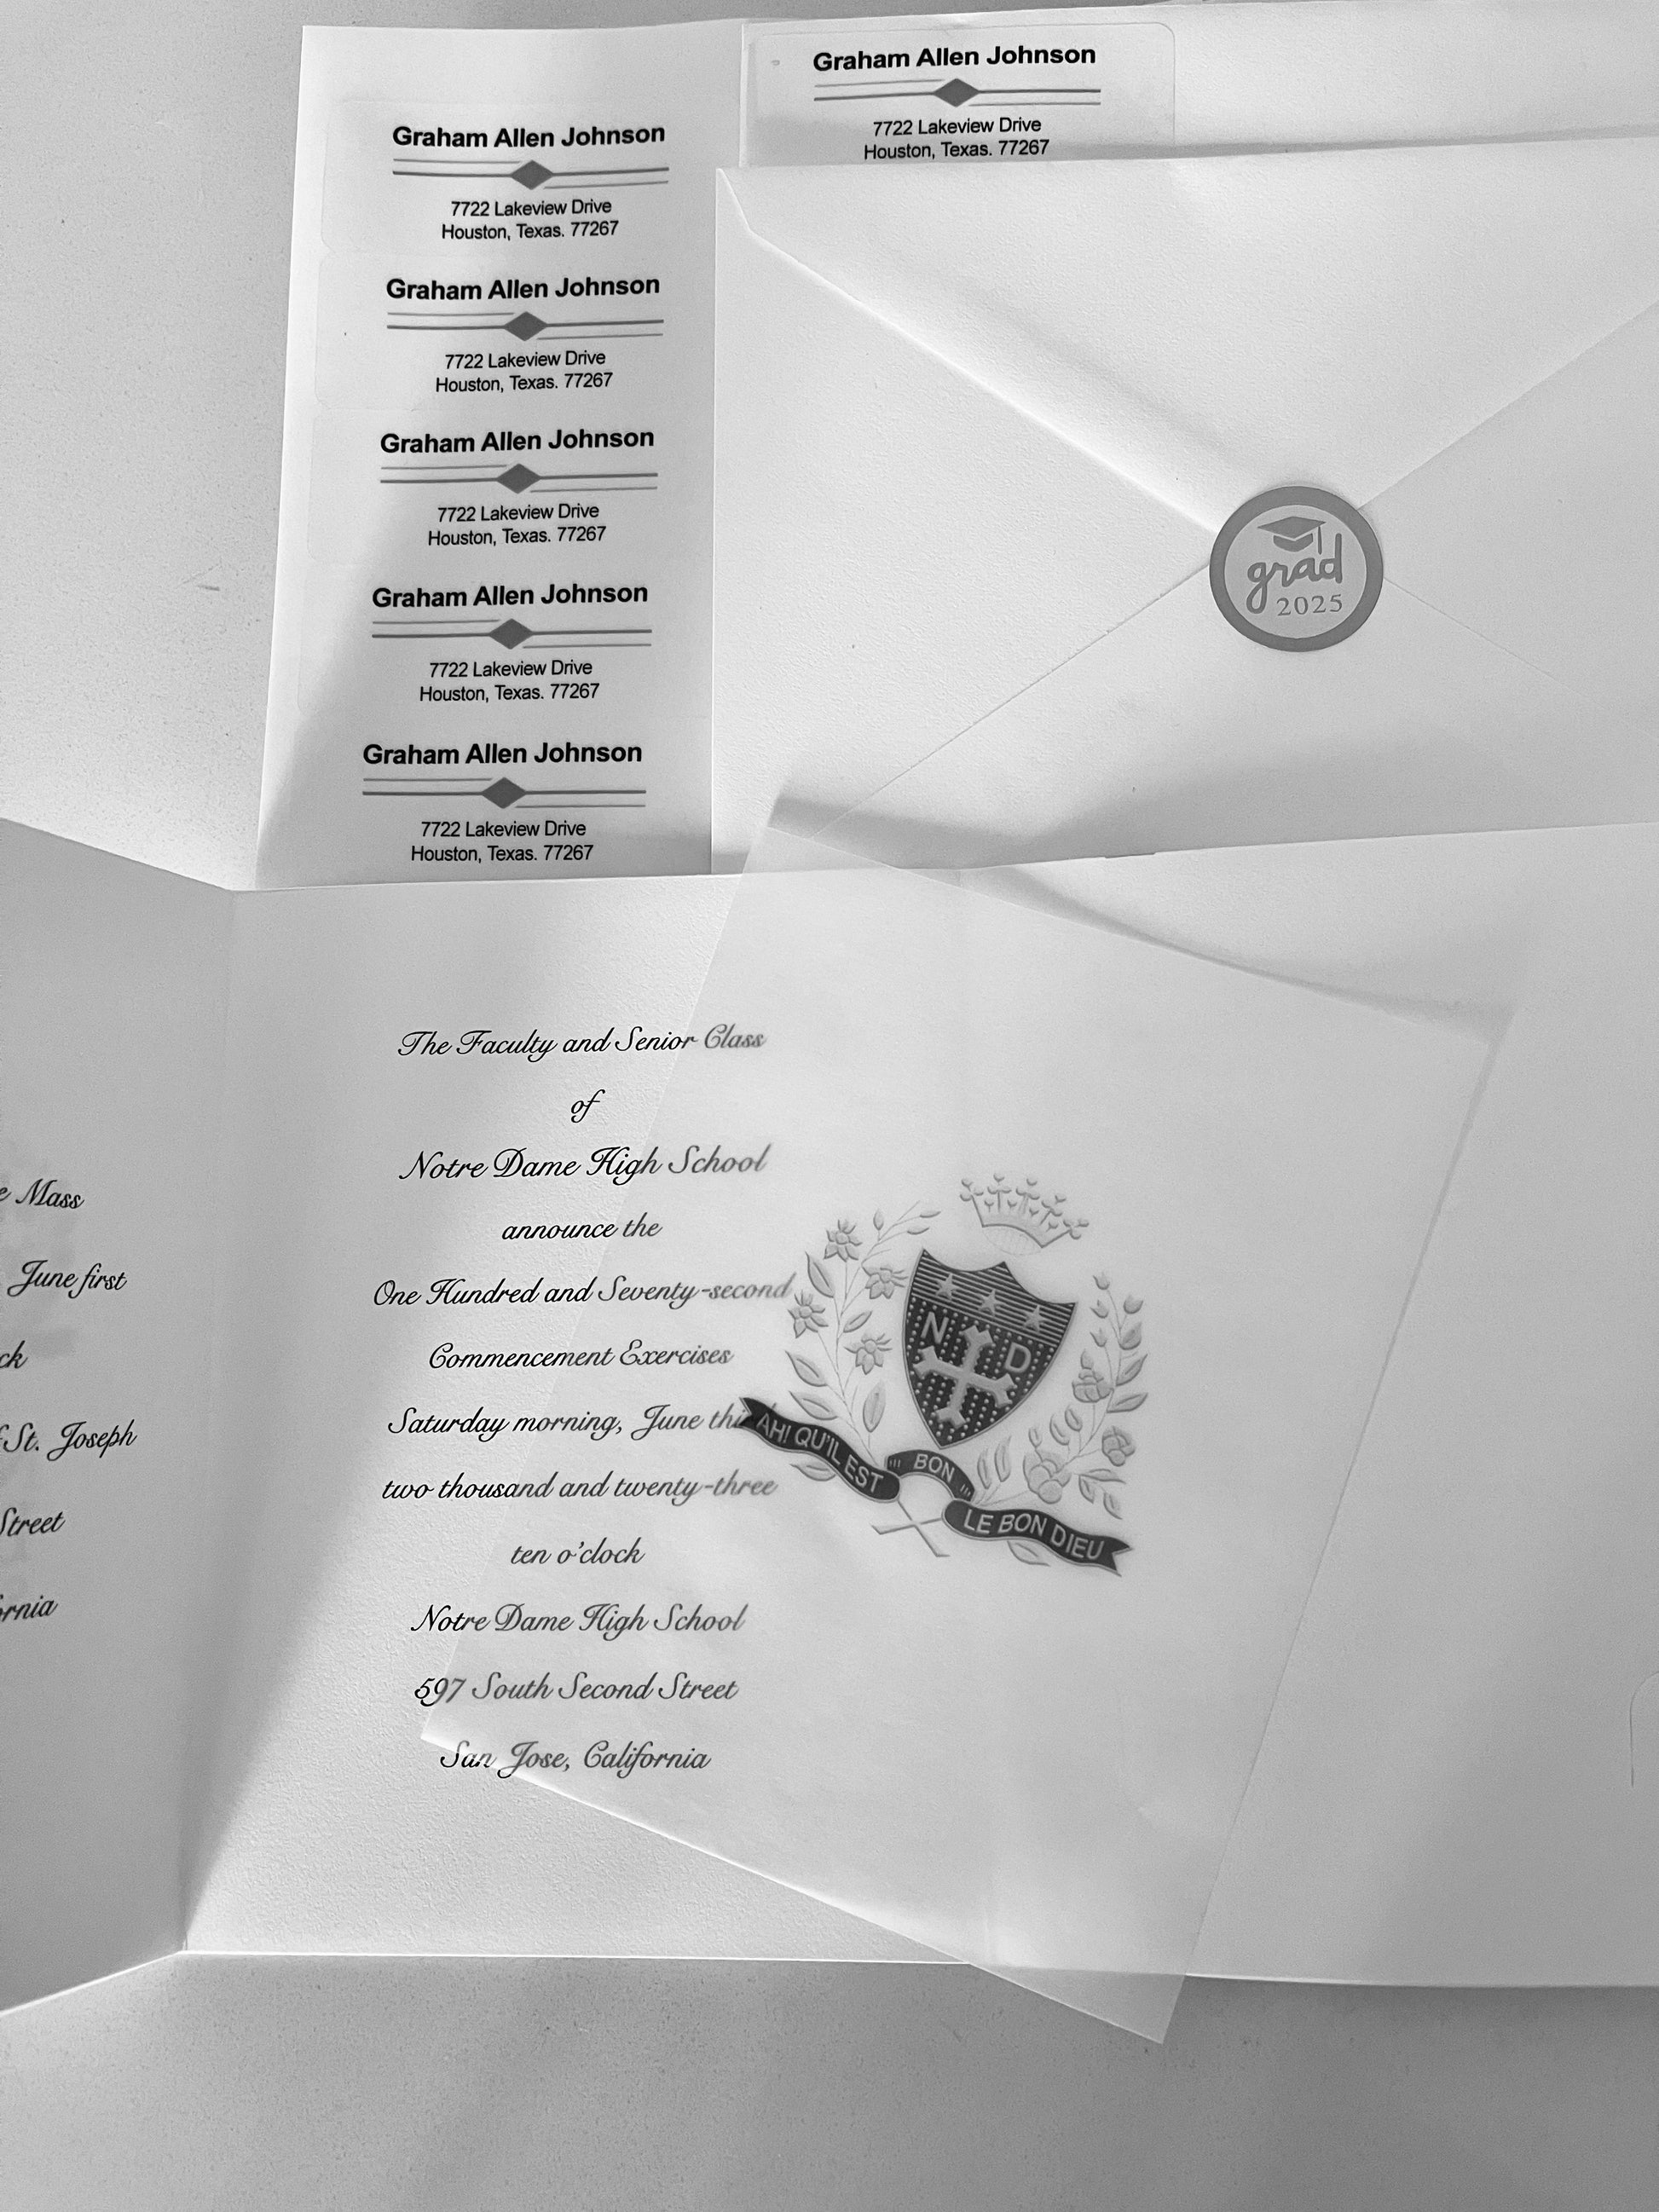 Graham Allen Johnson
7722 Lakeview Drive
Houston, Texas. 77267
Graham Allen Johnson
7722 Lakeview Drive
Houston, Texas. 77267
Graham Allen Johnson
7722 Lakeview Drive
Houston, Texas. 77267
Graham Allen Johnson
7722 Lakeview Drive
Houston, Texas. 77267
Graham Allen Johnson
7722 Lakeview Drive
Houston, Texas. 77267
Graham Allen Johnson
7722 Lakeview Drive
Houston, Texas. 77267
grad
2025
Mass
June first
St. Joseph
Street
The Faculty and Senior Class
of
Notre Dame High School
announce the
One Hundred and Seventy-second
Commencement Exercises
Saturday morning, June
two thousand and twenty-three
ten o'clock
Notre Dame High School
597 South Second Street
San Jose, California
N D
AH! QU'IL EST BON LE BON DIEU